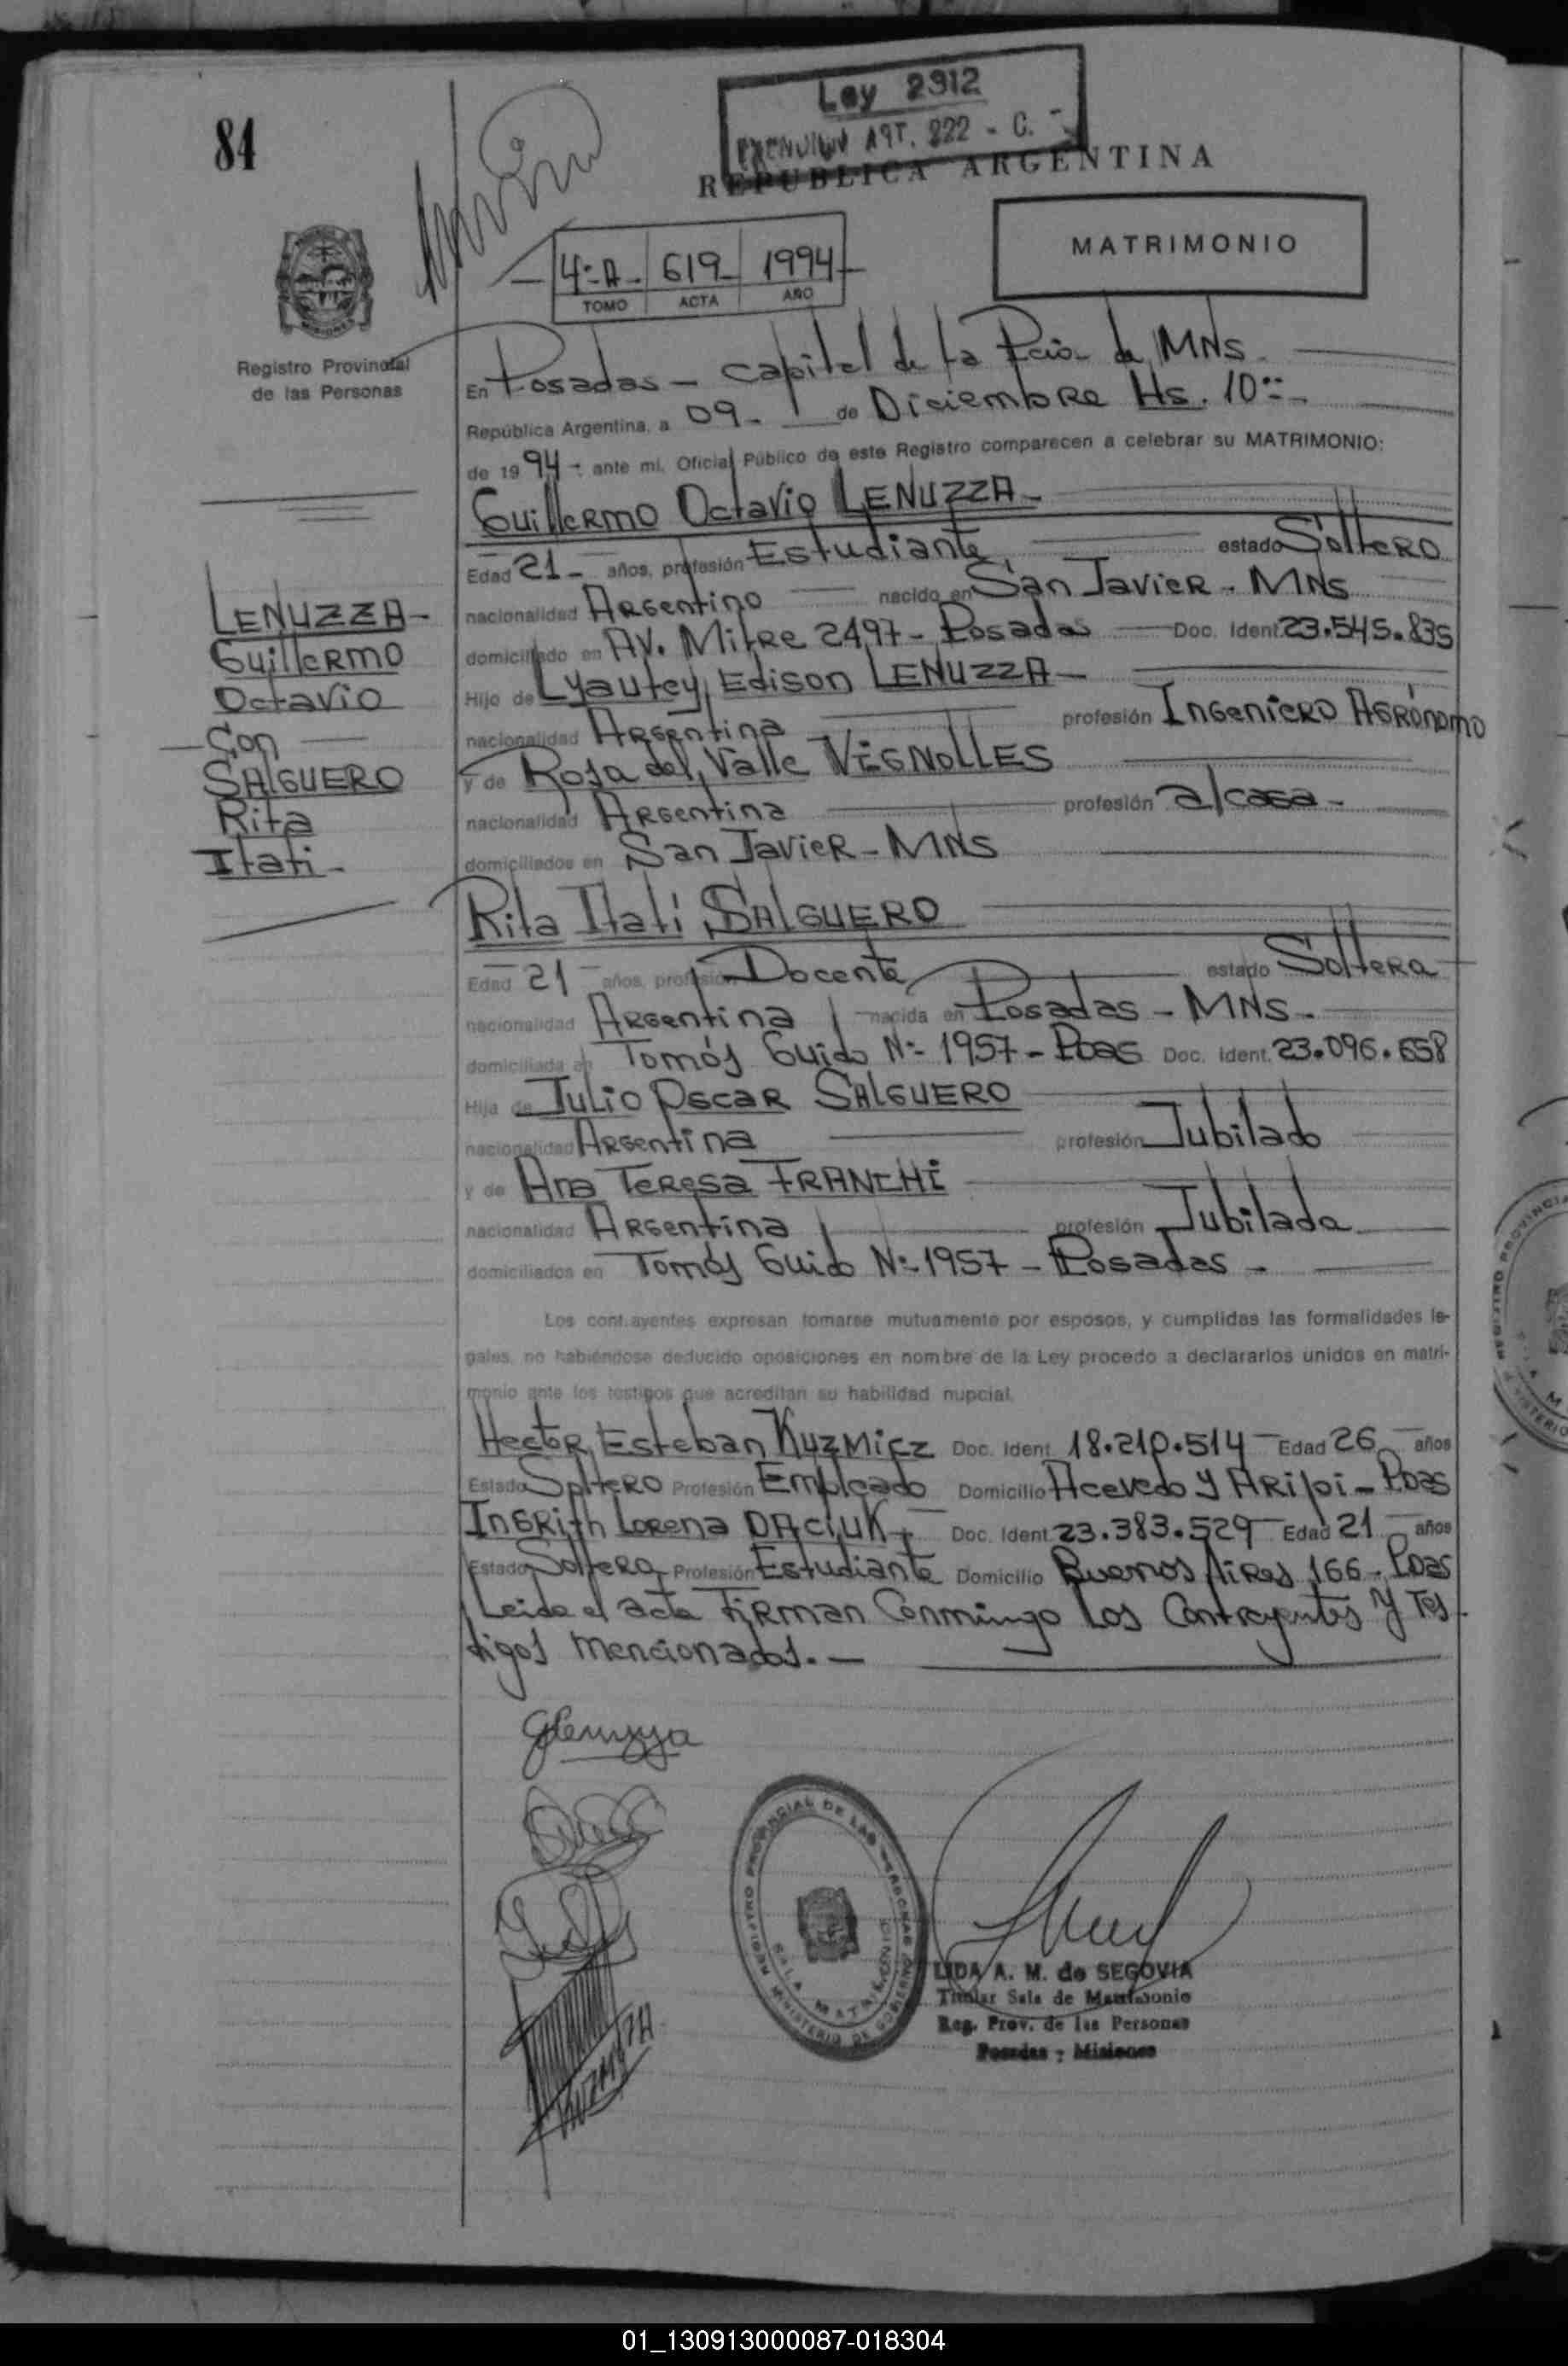 84
Ley 2912
ART. 222 - C. -
REPUBLICA ARGENTINA
MATRIMONIO
4º-A- 619- 1994-
TOMO ACTA AÑO
Registro Provincial
de las Personas
En Posadas - capital de la Pcia. de MNS.
República Argentina, a 09- de Diciembre Hs. 10:-
de 1994- ante mi, Oficial Público de este Registro comparecen a celebrar su MATRIMONIO:
Guillermo Octavio LENUZZA-
Edad 21- años, profesión Estudiante estado Soltero
nacionalidad Argentino nacido en San Javier - MNS
domiciliado en AV. Mitre 2497- Posadas Doc. Ident. 23.545.835
Hijo de Lyautey Edison LENUZZA-
nacionalidad Argentina profesión Ingeniero Agrónomo
y de Rosa del Valle VIGNOLLES
nacionalidad Argentina profesión a/casa-
domiciliados en San Javier - MNS
LENUZZA-
Guillermo
Octavio
- Con -
SALGUERO
Rita
Itatí-
Rita Itatí SALGUERO
Edad 21 años, profesión Docente estado Soltera
nacionalidad Argentina nacida en Posadas - MNS-
domiciliada en Tomás Guido Nº 1957- Pdas Doc. Ident. 23.096.658
Hija de Julio Oscar SALGUERO
nacionalidad Argentina profesión Jubilado
y de Ana Teresa FRANCHI
nacionalidad Argentina profesión Jubilada
domiciliados en Tomás Guido Nº 1957 - Posadas -
Los contrayentes expresan tomarse mutuamente por esposos, y cumplidas las formalidades le-
gales, no habiéndose deducido oposiciones en nombre de la Ley procedo a declararlos unidos en matri-
monio ante los testigos que acreditan su habilidad nupcial.
Hector Esteban KUZMICZ Doc. Ident. 18.210.514 Edad 26 años
Estado Soltero Profesión Empleado Domicilio Acevedo y Aripi - Pdas
Ingrith Lorena DACIUK- Doc. Ident. 23.383.529 Edad 21 años
Estado Soltera Profesión Estudiante Domicilio Buenos Aires 166 - Pdas
Leida el acta Firman Conmingo Los Contrayentes y Tes-
tigos mencionados. -
Glenuzza
REGISTRO PROVINCIAL DE LAS PERSONAS
SALA MATRIMONIO
MINISTERIO DE GOBIERNO
LIDA A. M. de SEGOVIA
Titular Sala de Matrimonio
Reg. Prov. de las Personas
Posadas - Misiones
01_130913000087-018304